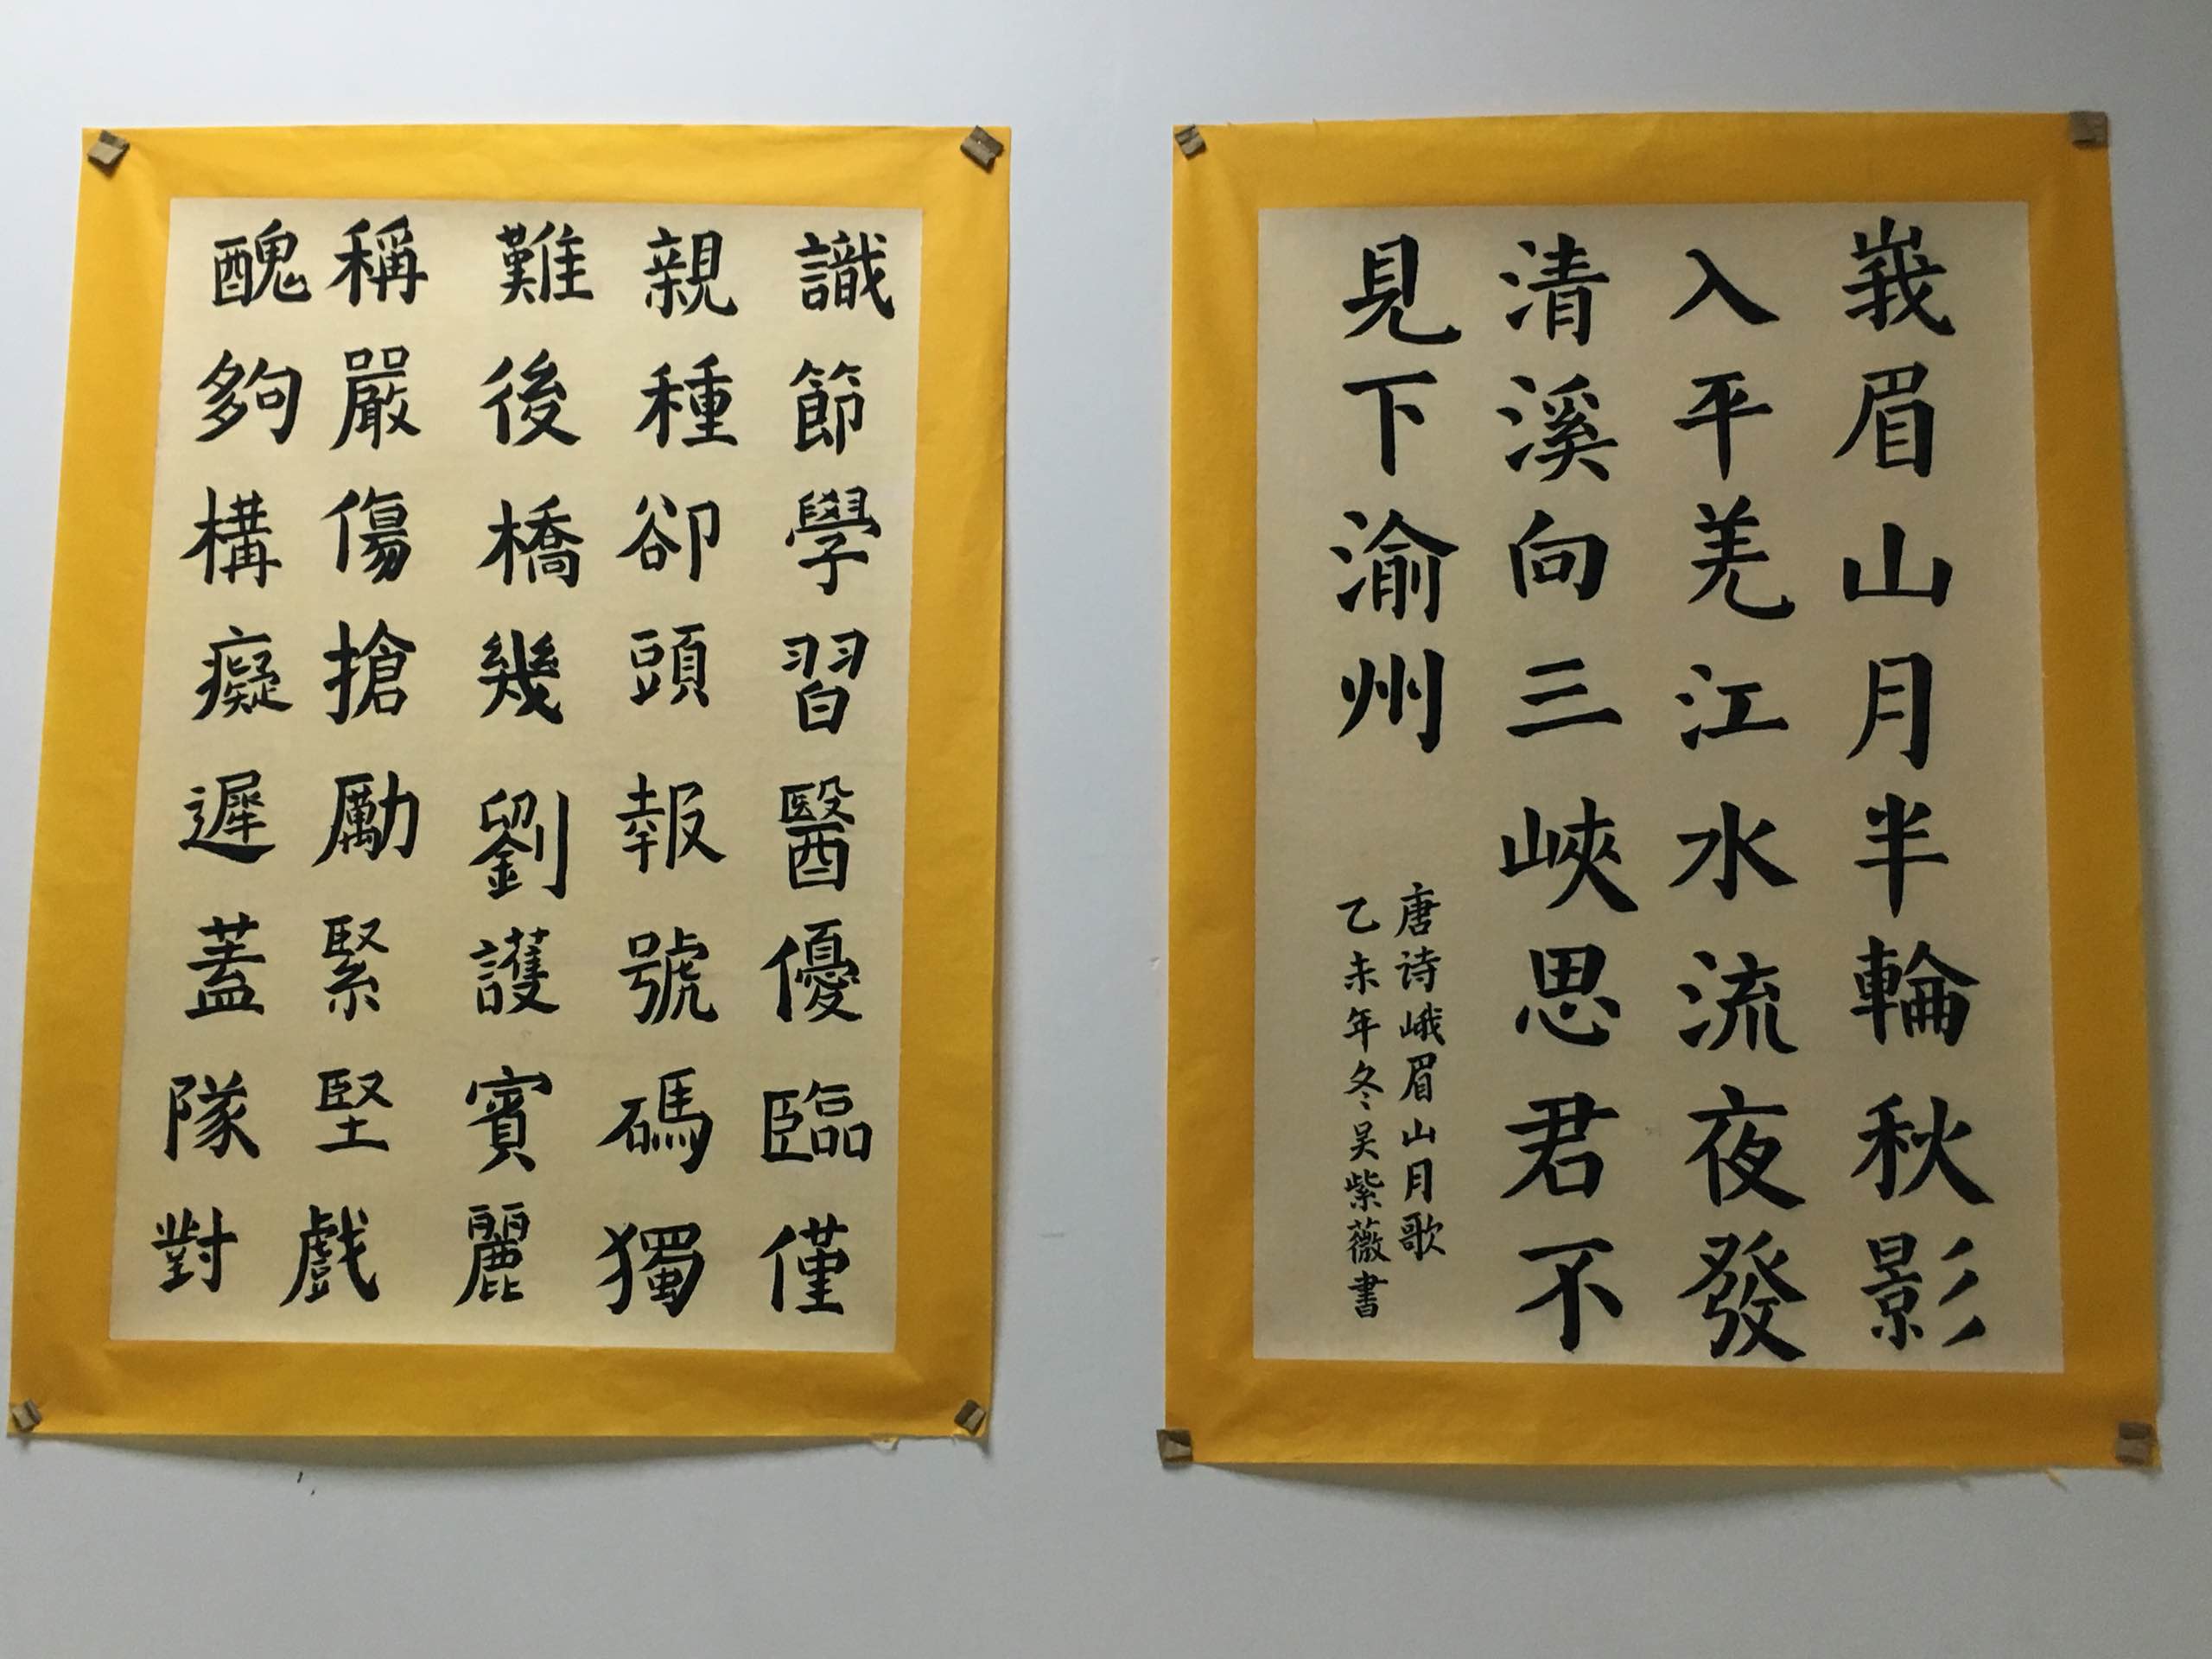 峩眉山月半輪秋影
入平羌江水流夜發
清溪向三峽思君不
見下渝州
唐诗峨眉山月歌
乙未年冬吴紫薇書
識節學習醫優臨僅
親種卻頭報號碼獨
難後橋幾劉護賓麗
稱嚴傷搶勵緊堅戲
醜夠構癡遲蓋隊對